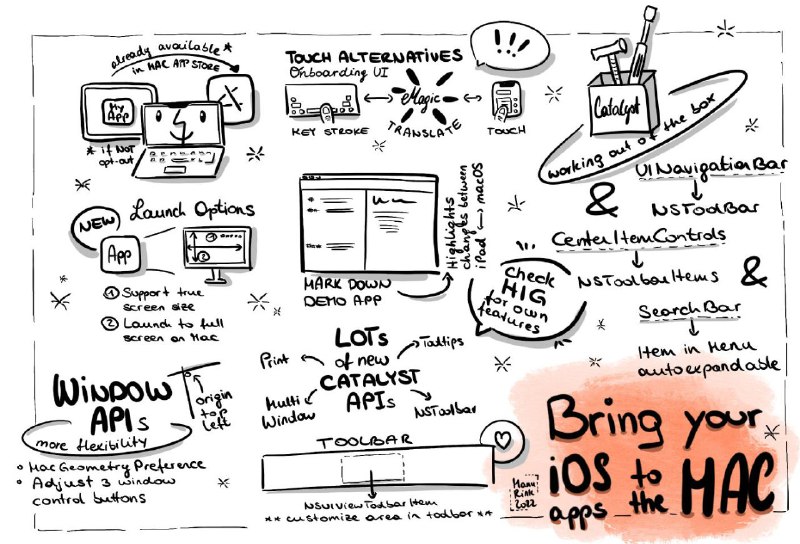 already available *
in MAC APP STORE
My
App
* if Not
opt-out
TOUCH ALTERNATIVES
Onboarding UI
!!!
Magic
KEY STROKE
TRANSLATE
TOUCH
Catalyst
working out of the box
UINavigationBar
&
NSToolBar
CenterItemControls
NSToolbarItems
&
SearchBar
Item in Menu
autoexpandable
NEW
Launch Options
App
1
2
1 Support true
screen size
2 Launch to full
screen on Mac
MARK DOWN
DEMO APP
Highlights
changes between
iPad ↔ macOS
check
HIG
for own
features
WINDOW
APIs
more flexibility
origin
top
left
o Mac Geometry Preference
o Adjust 3 window
control buttons
LOTs
of new
CATALYST
APIs
Print
Tooltips
Multi
Window
NSToolbar
TOOLBAR
NSUIViewToolbarItem
** customize area in toolbar **
Manu
Rink
2022
Bring your
iOS to
apps the MAC